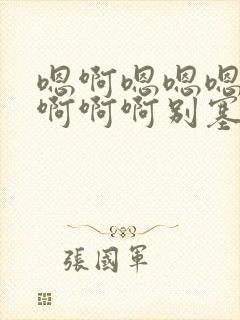 嗯啊嗯嗯嗯
啊啊啊别塞
張國軍